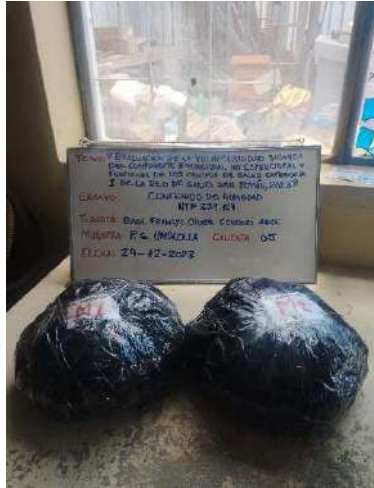 TEMA: "EVALUACION DE LA VULNERABILIDAD SISMICA
DEL COMPONENTE ESTRUCTURAL, NO ESTRUCTURAL Y
FUNCIONAL DE LOS CENTROS DE SALUD CATEGORIA
I DE LA RED DE SALUD SAN ROMÁN, 2023"
ENSAYO: CONTENIDO DE HUMEDAD
NTP 339.
TESISTA: BACH. FRANCYS OLIVER
MUESTRA: P.S. CALICATA: 05
FECHA: 29-12-2023
M1